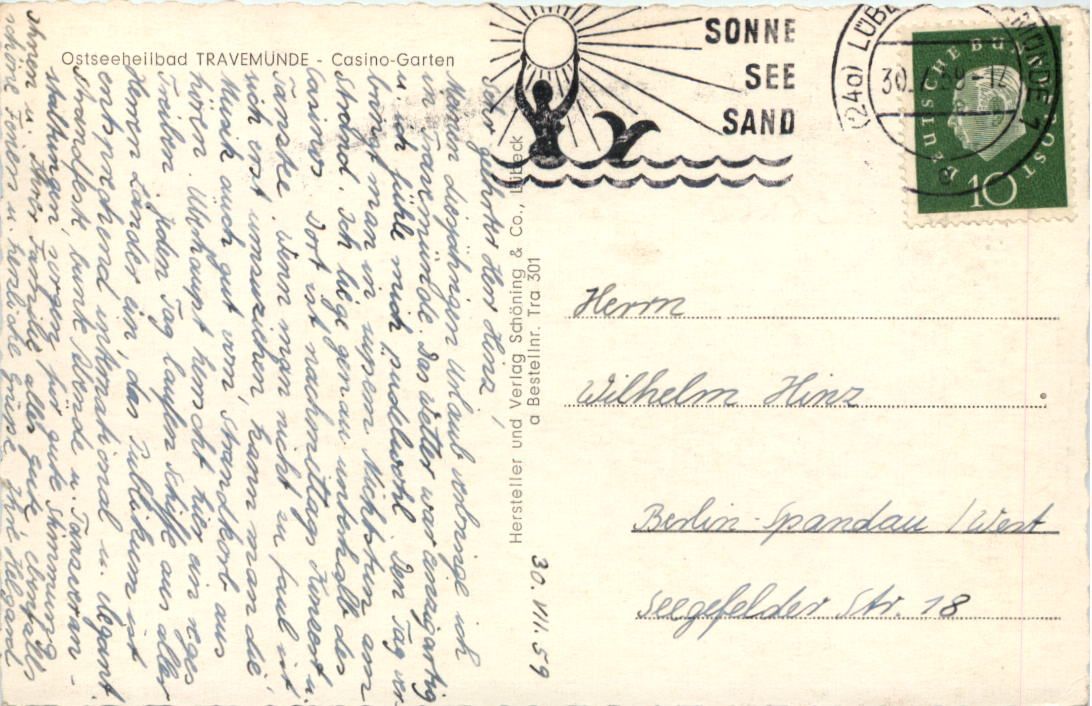 Ostseeheilbad TRAVEMÜNDE - Casino-Garten
SONNE
SEE
SAND
(24a) LÜBE
MÜNDE 1
30.7.59-14
a
DEUTSCHE BUNDESPOST
10
Sehr geehrter Herr Hinz,
Meinen diesjährigen Urlaub verbringe ich
in Travemünde. Das Wetter war einzigartig
u. ich fühle mich pudelwohl. Den Tag ver-
bringt man in süßem Nichtstun am
Strand. Ich liege genau unterhalb des
Casinos. Dort ist nachmittags Konzert u.
Tanztee. Wenn man nicht zu faul ist
sich erst umzuziehen, kann man die
Musik auch gut vom Strandkorb aus
hören. Überhaupt herrscht hier ein reges
Treiben. Jeden Tag laufen Schiffe aus aller
Herren Länder ein, das Publikum ist
entsprechend international u. elegant.
Strandfeste, bunte Abende u. Tanzveran-
staltungen sorgen für gute Stimmung.
Ihnen u. Ihrer Familie alles Gute, ebenfalls
schöne Ferien u. herzliche Grüße, Ihre
Hersteller und Verlag Schöning & Co., Lübeck
a Bestellnr. Tra 301
30. VII. 59
Herrn
Wilhelm Hinz
Berlin-Spandau /West
Seegefelder Str. 18